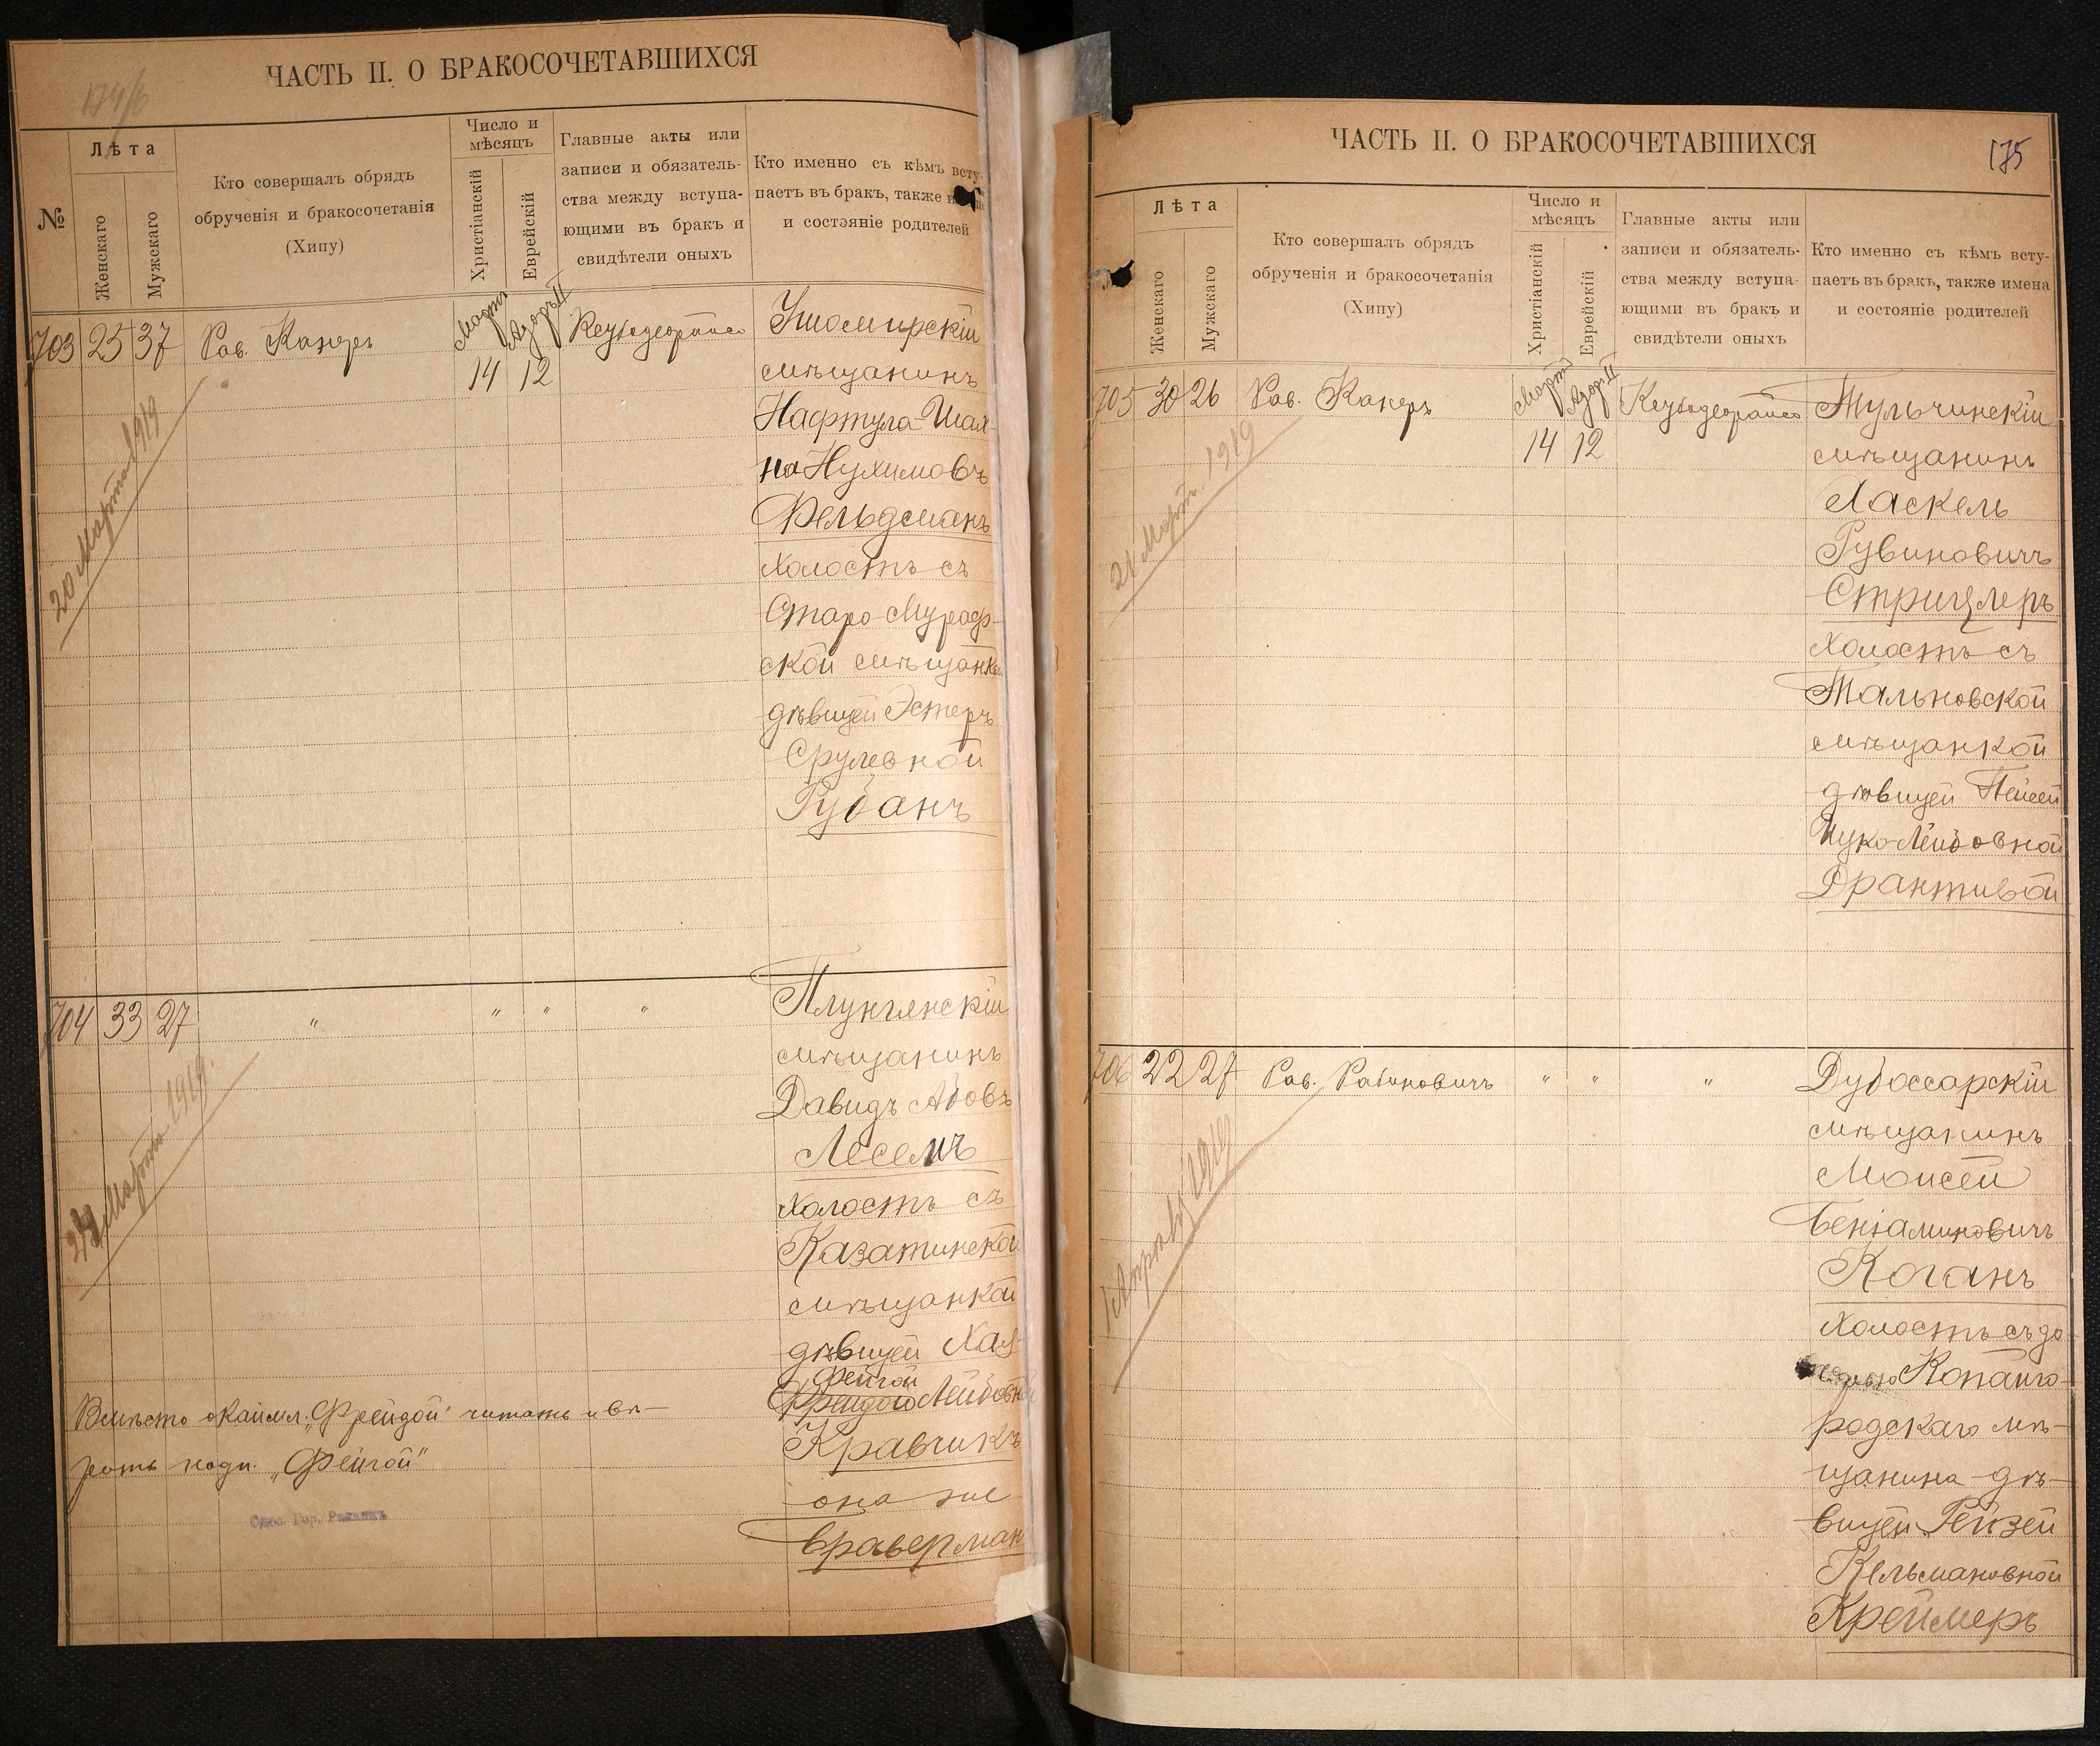 174/б
ЧАСТЬ II. О БРАКОСОЧЕТАВШИХСЯ
№
Лѣта
Женскаго
Мужскаго
Кто совершалъ обрядъ
обрученія и бракосочетанія
(Хипу)
Число и
мѣсяцъ
Христіанскій
Еврейскій
Главные акты или
записи и обязатель-
ства между вступа-
ющими въ бракъ и
свидѣтели оныхъ
Кто именно съ кѣмъ всту-
паетъ въ бракъ, также
и состояніе родителей
703 25 37 Рав. Канеръ
Мартъ Адаръ II
14 12
Кеуbодеораисо
Ушомирскій
мѣщанинъ
Нафтула-Шах-
на Нухимовъ
Фельдманъ
холостъ съ
Старо-Мураф-
ской мѣщанкой
дѣвицей Эстеръ
Срулевной
Губанъ
20 Марта 1919
704 33 27 " " " "
Плунгянскій
мѣщанинъ
Давидъ Абовъ
Лесемъ
холостъ съ
Казатинской
мѣщанкой
дѣвицей Хая-
Фейгой
Фрейдою Лейбовной
Кравчикъ
она же
Браверман
Марта 1919.
Вмѣсто окаймл. „Фрейдой" читать и вѣ-
рить надп. „Фейгой"
Одес. Гор. Раввинъ
ЧАСТЬ II. О БРАКОСОЧЕТАВШИХСЯ
175
Лѣта
Женскаго
Мужскаго
Кто совершалъ обрядъ
обрученія и бракосочетанія
(Хипу)
Число и
мѣсяцъ
Христіанскій
Еврейскій
Главные акты или
записи и обязатель-
ства между вступа-
ющими въ бракъ и
свидѣтели оныхъ
Кто именно съ кѣмъ всту-
паетъ въ бракъ, также имена
и состояніе родителей
705 30 26 Рав. Канеръ
Мартъ Адаръ II
14 12
Тульчинскій
мѣщанинъ
Хаскель
Рувиновичъ
Стрицлеръ
холостъ съ
Тальновской
мѣщанкой
дѣвицей Пейсей
Цуко-Лейбовной
Драктивой
21 Марта 1919
706 22 27 Рав. Рабиновичъ " " "
Дубоссарскій
мѣщанинъ
Моисей
Беніаминовичъ
Коганъ
холостъ съ до-
Копайго-
родскаго мѣ-
щанина-дѣ-
вицей Рейзей
Кельмановной
Креймеръ
1 Апрѣля 1919